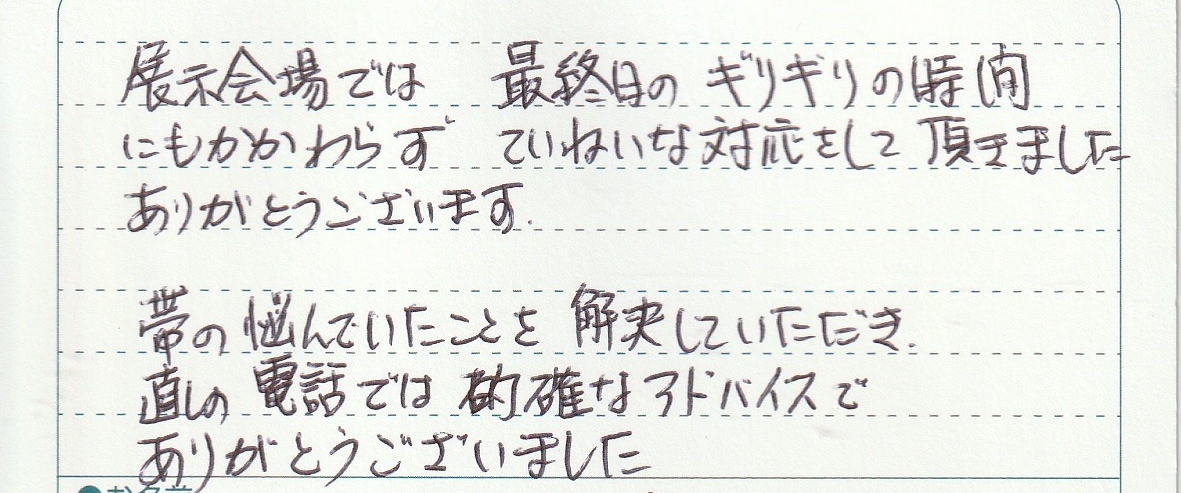 展示会場では 最終日の ギリギリの時間
にもかかわらず ていねいな対応をして頂きました
ありがとうございます.
帯の悩んでいたことを解決していただき.
直しの電話では 的確なアドバイスで
ありがとうございました